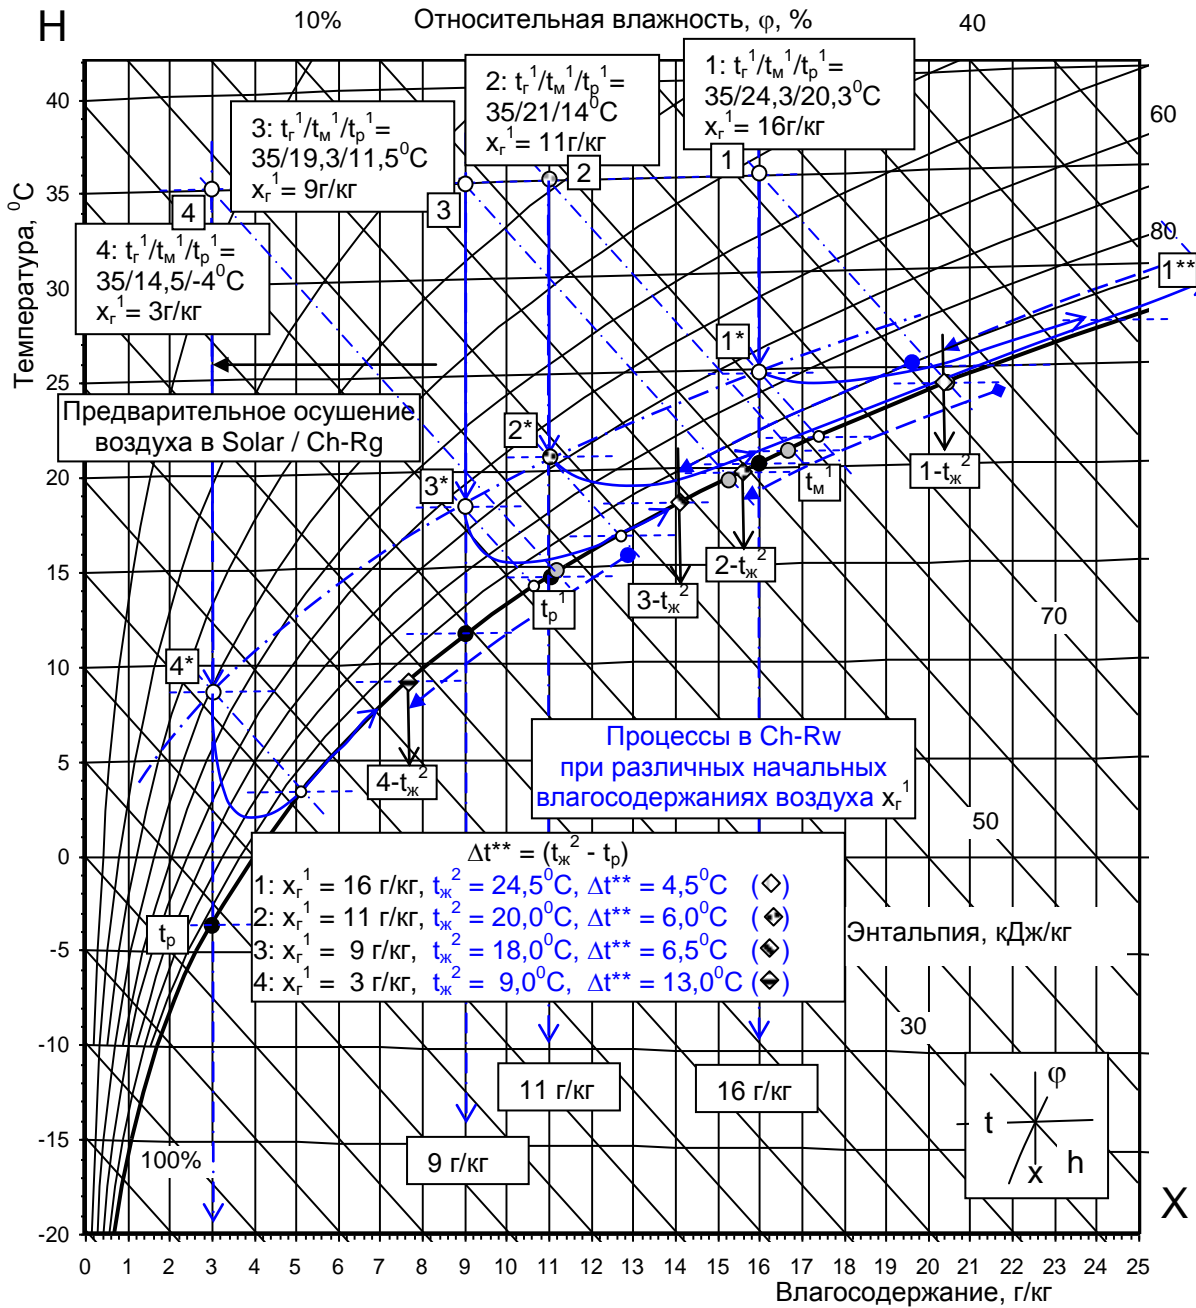 H
10%
Относительная влажность, φ, %
40
1: tг¹/tм¹/tр¹=
35/24,3/20,3⁰C
xг¹ = 16г/кг
2: tг¹/tм¹/tр¹=
35/21/14⁰C
xг¹ = 11г/кг
3: tг¹/tм¹/tр¹=
35/19,3/11,5⁰C
xг¹ = 9г/кг
4: tг¹/tм¹/tр¹=
35/14,5/-4⁰C
xг¹ = 3г/кг
1
2
3
4
60
80
1**
1*
2*
3*
4*
Температура, ⁰C
40
35
30
25
20
15
10
5
0
-5
-10
-15
-20
Предварительное осушение
воздуха в Solar / Ch-Rg
tм¹
1-tж²
2-tж²
3-tж²
tр¹
4-tж²
70
50
30
Процессы в Ch-Rw
при различных начальных
влагосодержаниях воздуха xг¹
Δt** = (tж² - tр)
1: xг¹ = 16 г/кг, tж² = 24,5⁰C, Δt** = 4,5⁰C ( )
2: xг¹ = 11 г/кг, tж² = 20,0⁰C, Δt** = 6,0⁰C ( )
3: xг¹ = 9 г/кг, tж² = 18,0⁰C, Δt** = 6,5⁰C ( )
4: xг¹ = 3 г/кг, tж² = 9,0⁰C, Δt** = 13,0⁰C ( )
tр
Энтальпия, кДж/кг
11 г/кг
16 г/кг
9 г/кг
100%
φ
t
h
x
X
0 1 2 3 4 5 6 7 8 9 10 11 12 13 14 15 16 17 18 19 20 21 22 23 24 25
Влагосодержание, г/кг